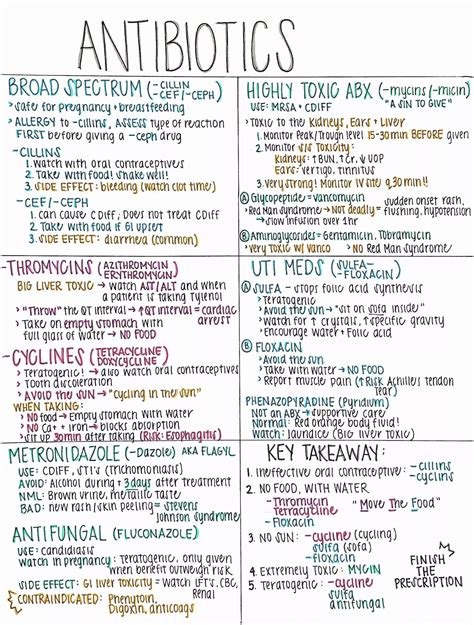 ANTIBIOTICS
BROAD SPECTRUM (-CILLIN
-CEF/-CEPH)
> safe for pregnancy + breastfeeding
> ALLERGY to -cillins, ASSESS type of reaction
FIRST before giving a -ceph drug
-CILLINS
1. Watch with oral contraceptives
2. Take with food! Shake well!
3. SIDE EFFECT: bleeding (watch clot time)
-CEF/-CEPH
1. can cause CDiff, Does not treat CDiff
2. Take with food if GI upset
3. SIDE EFFECT: diarrhea (common)
HIGHLY TOXIC ABX (-mycins/-micin)
USE: MRSA + CDIFF "A SIN TO GIVE"
> Toxic to the Kidneys, Ears + Liver
1. Monitor Peak/Trough level 15-30min BEFORE given
2. Monitor S/S Toxicity:
Kidneys: ↑BUN, ↑Cr, ↓UOP
Ears: Vertigo, tinnitus
3. Very strong! Monitor IV site q 30min!!
Ⓐ Glycopeptide = vancomycin
> Red Man Syndrome → Not deadly = sudden onset rash, flushing, hypotension
→ slow infusion over 1hr
Ⓑ Aminoglycosides = Gentamicin, Tobramycin
> Very toxic w/ vanco > No Red Man Syndrome
-THROMYCINS (AZITHROMYCIN
ERYTHROMYCIN)
BIG LIVER TOXIC → watch AST/ALT and when
a patient is taking Tylenol
> "Throw" the QT interval → QT interval = cardiac arrest
> Take on empty stomach with
full glass of water → NO FOOD
-CYCLINES (TETRACYCLINE
DOXYCYCLINE)
> Teratogenic! → also watch oral contraceptives
> Tooth discoloration
> AVOID the SUN → "cycling in the sun"
WHEN TAKING:
> NO food → Empty stomach with water
> NO Ca + iron → blocks absorption
> sit up 30min after taking (Risk: Esophagitis)
UTI MEDS (SULFA-
-FLOXACIN)
Ⓐ SULFA - stops folic acid synthesis
> Teratogenic
> Avoid the SUN → "sit on sofa inside"
> Watch for ↑ crystals, ↑ specific gravity
> Encourage water + Folic acid
Ⓑ FLOXACIN
> Avoid the SUN
> Take with water → NO FOOD
> Report muscle pain (↑Risk Achilles tendon
tear)
PHENAZOPYRADINE (Pyridium)
NOT an ABX → supportive care
Normal: Red orange body fluid!
Watch: Jaundice (Big liver toxic)
METRONIDAZOLE (-Dazole) AKA FLAGYL
USE: CDIFF, STI's (Trichomoniasis)
AVOID: Alcohol during + 3 days after treatment
NML: Brown urine, metallic taste
BAD: new rash/skin peeling = stevens
johnson syndrome
ANTIFUNGAL (FLUCONAZOLE)
USE: candidiasis
Watch in pregnancy: Teratogenic, only given
when benefit outweigh risk
SIDE EFFECT: GI liver toxicity = Watch LFT's, CBC,
Renal
CONTRAINDICATED: Phenytoin,
Digoxin, anticoags
KEY TAKEAWAY:
1. Ineffective oral contraceptive: -cillins
-cyclins
2. NO FOOD, WITH WATER
-Thromycin
Tetracycline
-Floxacin
"Move The Food"
3. NO SUN: -cycline (cycling)
sulfa (sofa)
-floxacin
4. Extremely TOXIC: MYCIN
5. Teratogenic: -cycline
sulfa
antifungal
FINISH
THE
PRESCRIPTION